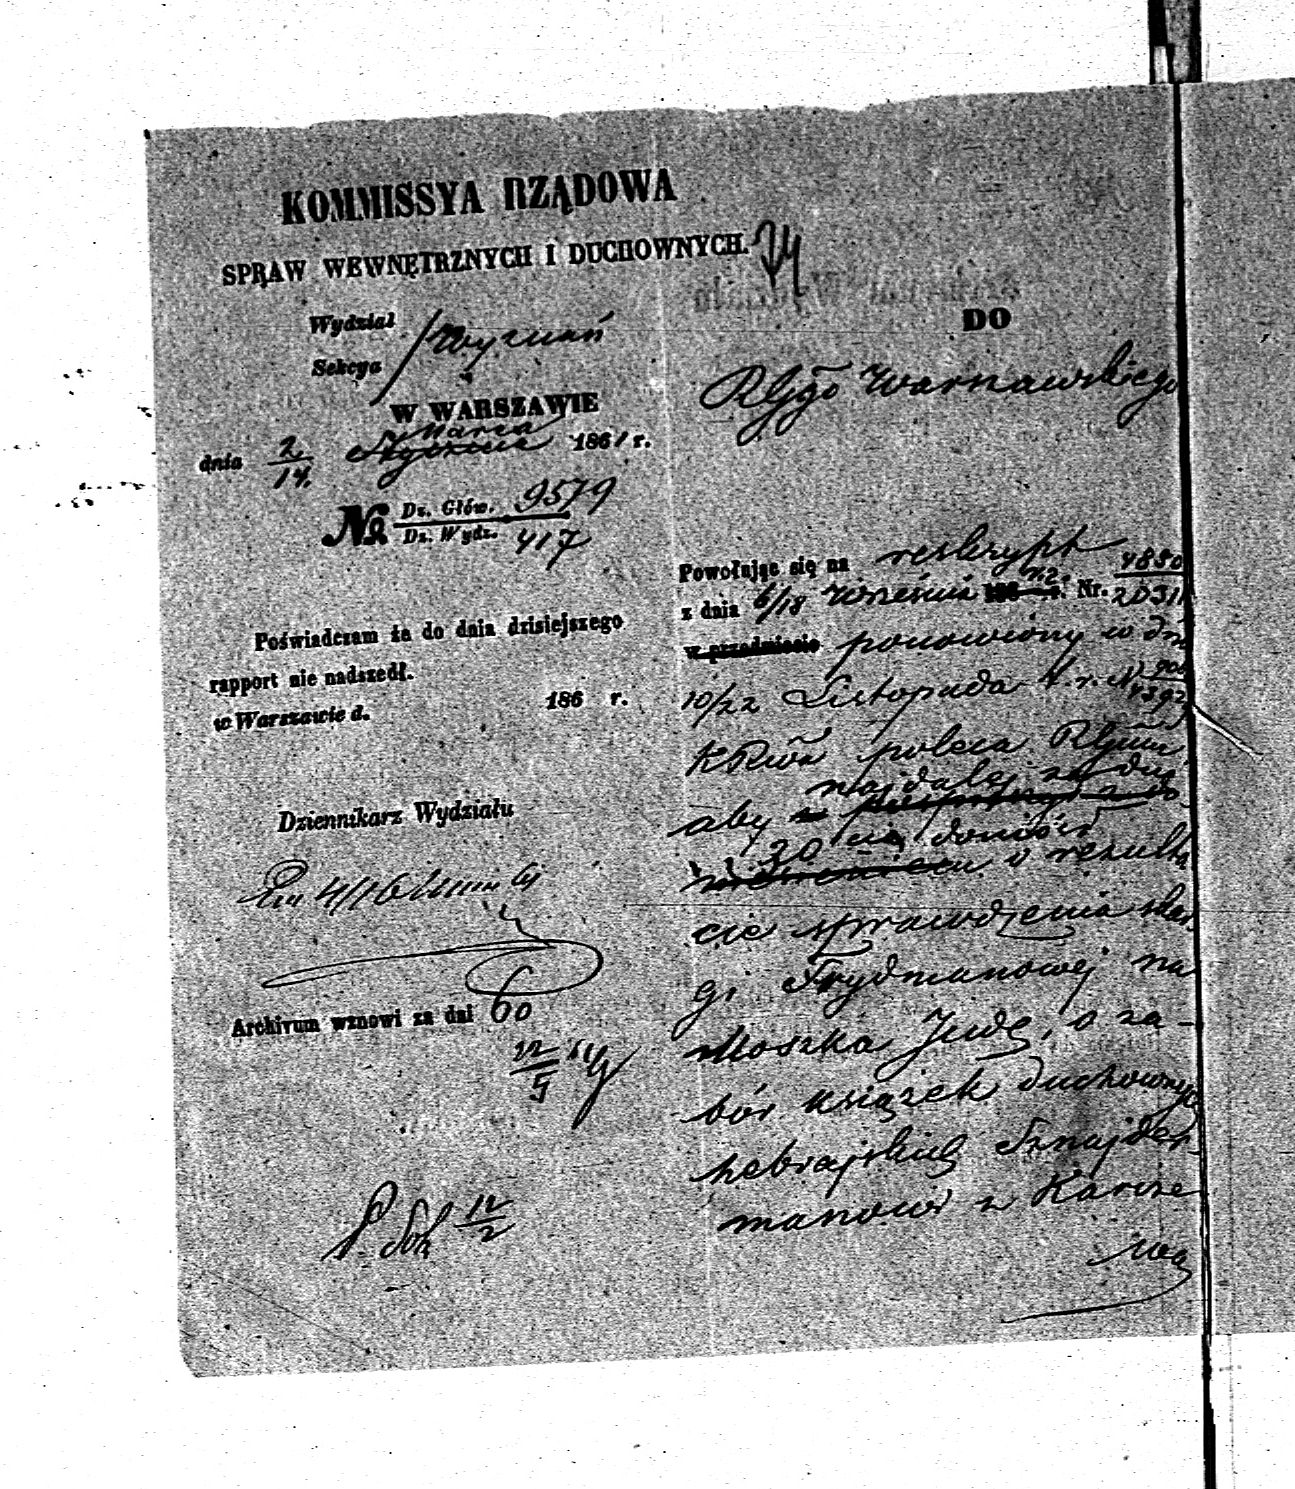 KOMMISSYA RZĄDOWA
SPRAW WEWNĘTRZNYCH I DUCHOWNYCH.
24
Wydział
Sekcya
Wyznań
W WARSZAWIE
Marca
dnia 2/14. Stycznia 1861 r.
№ Dz. Głów. 9579
Dz. Wydz. 417
Poświadczam że do dnia dzisiejszego
rapport nie nadszedł.
w Warszawie d. 186 r.
Dziennikarz Wydziału
Archivum wznowi za dni 60
12/5
12/2
DO
RGgo Warszawskiego
Powołując się na reskrypt 4880
z dnia 6/18 Września 186 r. z. Nr. 2031
w przedmiocie ponowiony w dn
10/22 Listopada t. r. N
4392
KRwa poleca RGmu
najdalej za dni
aby w
30 doniósł
o rezulta
cie sprawdzenia skar
gi Frydmanowej na
Moszka Judę, o za-
bór książek duchownych
hebrajskich Sznajder
manowi z Karcze
wa